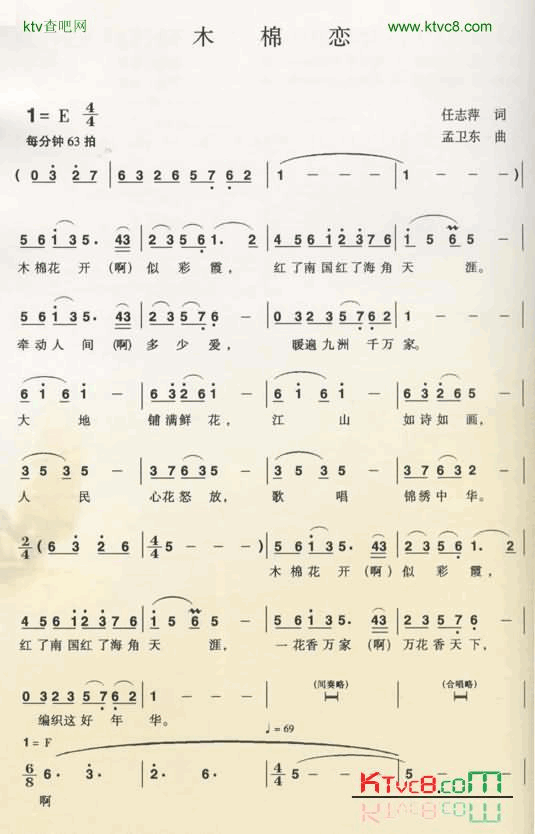 ktv查吧网
www.ktvc8.com
木 棉 恋
1= E 4/4
任志萍 词
每分钟 63 拍
孟卫东 曲
( 0 3 2 7 | 6 3 2 6 5 7 6 2 | 1 - - - | 1 - - - ) |
5 6 1 3 5. 43 | 2 3 5 6 1. 2 | 4 5 6 1 2 3 7 6 | 1 5 6 5 - |
木棉花 开 (啊) 似 彩 霞, 红了南国红了海角 天 涯。
5 6 1 3 5. 43 | 2 3 5 7 6 - | 0 3 2 3 5 7 6 2 | 1 - - - |
牵动人 间 (啊) 多 少 爱, 暖遍九洲 千万 家。
6 1 6 1 - | 6 3 2 6 1 - | 1 6 1 6 - | 6 3 2 6 1 - |
大 地 铺满鲜 花, 江 山 如诗如 画,
3 5 3 5 - | 3 7 6 5 3 - | 3 5 3 5 - | 3 7 6 3 2 - |
人 民 心花怒 放, 歌 唱 锦绣中 华。
2/4 ( 6 3 2 6 | 4/4 5 - - - ) | 5 6 1 3 5. 43 | 2 3 5 6 1. 2 |
木棉花 开 (啊) 似 彩 霞,
4 5 6 1 2 3 7 6 | 1 5 6 5 - | 5 6 1 3 5. 43 | 2 3 5 7 6 - |
红了南国红了海角 天 涯, 一花香万家 (啊) 万花香天下,
0 3 2 3 5 7 6 2 | 1 - - - | (间奏略) | (合唱略) |
编织这好 年 华。
♩= 69
1 = F
6/8 6. 3. | 2. 6. | 4/4 5 - - - | 5 - - - |
啊
KTvc8.com